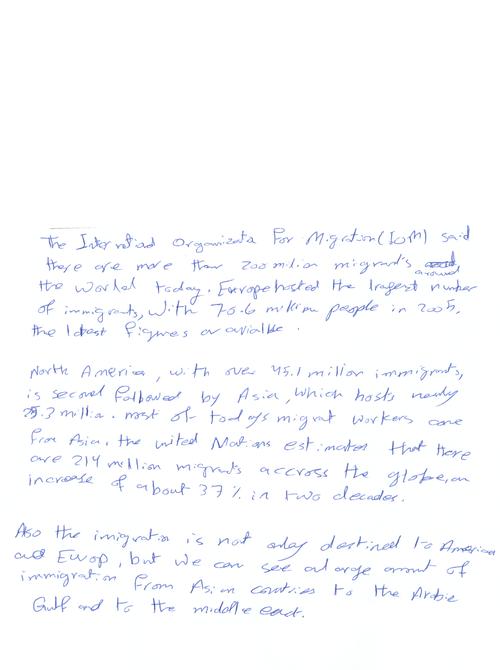 The Internatioal Organizata For Migration (IOM) said
there are more than 200 million migrant's around
the World today. Europe hosted the largest number
of immigrants, with 70.6 million people in 2005,
the latest figures are avialble.
North America, with over 45.1 million immigrants,
is second followed by Asia, which hosts nearly
25.3 million. most of today's migrant workers come
from Asia. the united Nations estimates that there
are 214 million migrants accross the globe, an
increase of about 37% in two decades.
Also the imigration is not only destined to America
and Europ, but we can see a large amont of
immigration from Asian countries to the Arabic
Gulf and to the middle east.